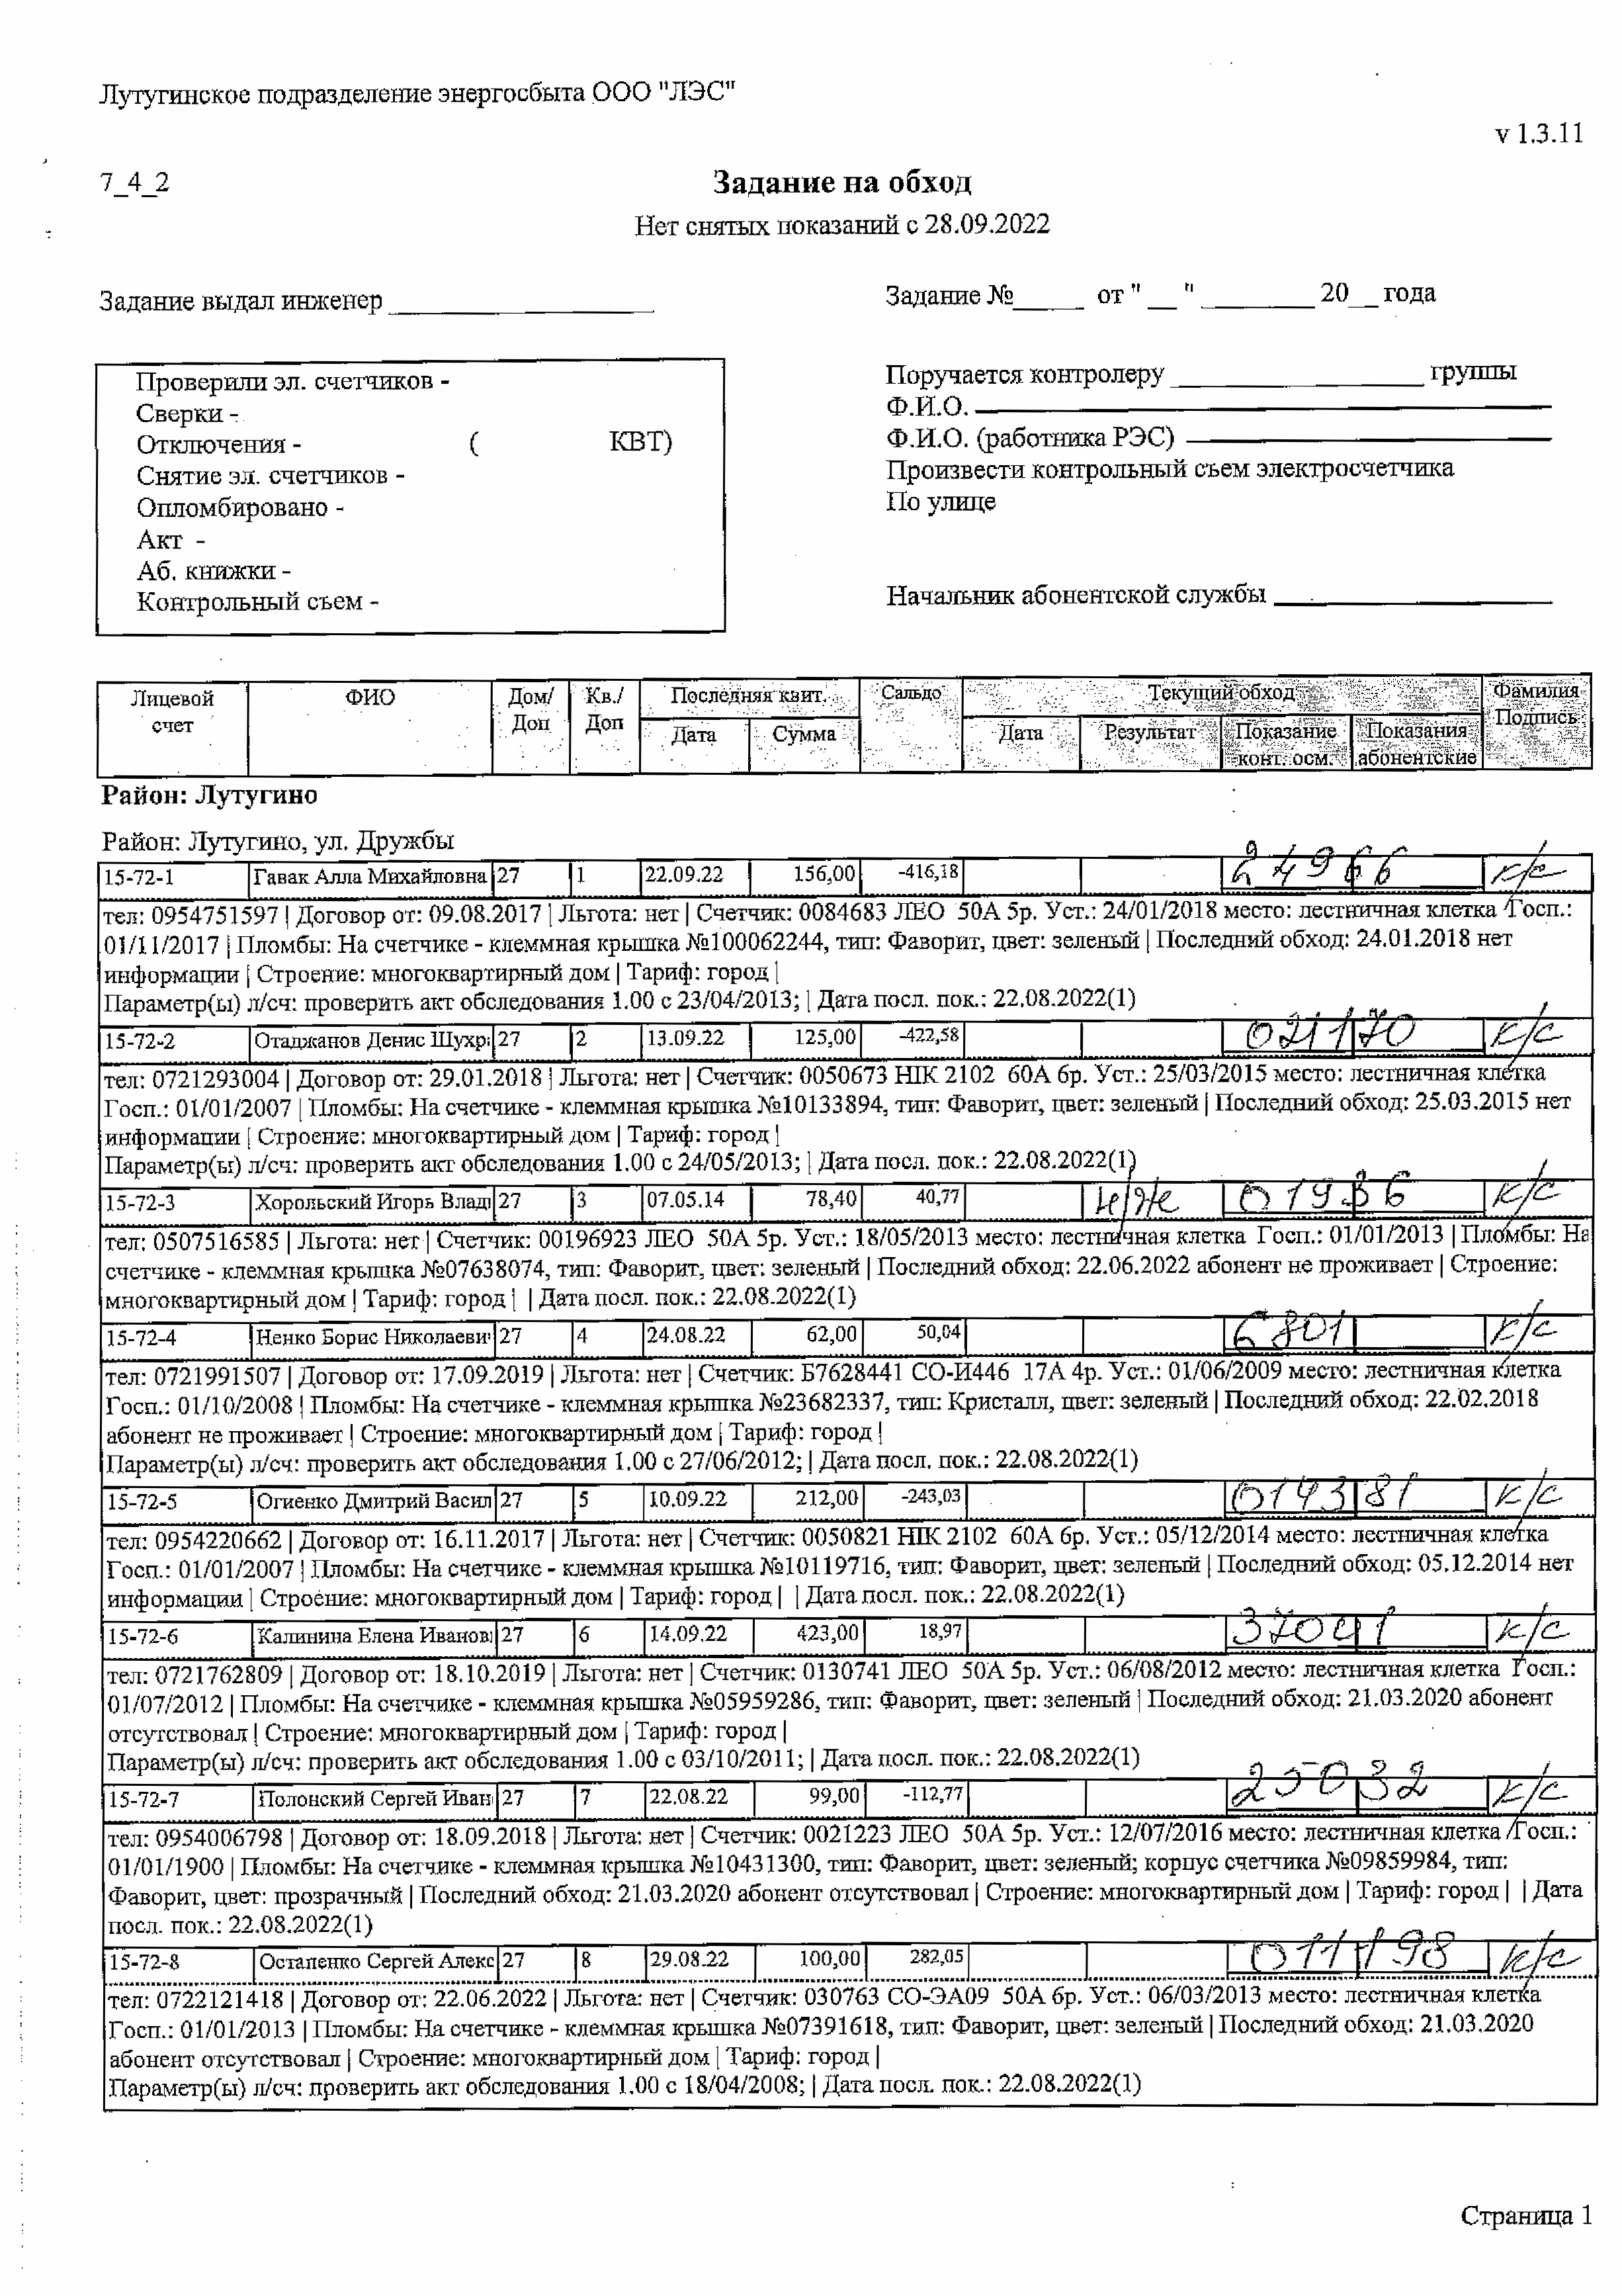 Лутугинское подразделение энергосбыта ООО "ЛЭС"
v 1.3.11
7_4_2
Задание на обход
Нет снятых показаний с 28.09.2022
Задание выдал инженер ____________
Задание №_____ от "__" ________ 20__ года
Проверили эл. счетчиков -
Сверки -
Отключения - ( КВТ)
Снятие эл. счетчиков -
Опломбировано -
Акт -
Аб. книжки -
Контрольный съем -
Поручается контролеру ____________ группы
Ф.И.О.
Ф.И.О. (работника РЭС)
Произвести контрольный съем электросчетчика
По улице
Начальник абонентской службы
Лицевой счет ФИО Дом/ Доп Кв./ Доп Последняя квит. Дата Сумма Сальдо Текущий обход Дата Результат Показание конт. осм. Показания абонентские Фамилия Подпись
Район: Лутугино
Район: Лутугино, ул. Дружбы
15-72-1 Гавак Алла Михайловна 27 1 22.09.22 156,00 -416,18 24966 к/с
тел: 0954751597 | Договор от: 09.08.2017 | Льгота: нет | Счетчик: 0084683 ЛЕО 50А 5р. Уст.: 24/01/2018 место: лестничная клетка Госп.:
01/11/2017 | Пломбы: На счетчике - клеммная крышка №100062244, тип: Фаворит, цвет: зеленый | Последний обход: 24.01.2018 нет
информации | Строение: многоквартирный дом | Тариф: город |
Параметр(ы) л/сч: проверить акт обследования 1.00 с 23/04/2013; | Дата посл. пок.: 22.08.2022(1)
15-72-2 Отаджанов Денис Шухр 27 2 13.09.22 125,00 -422,58 021170 к/с
тел: 0721293004 | Договор от: 29.01.2018 | Льгота: нет | Счетчик: 0050673 НІК 2102 60А 6р. Уст.: 25/03/2015 место: лестничная клетка
Госп.: 01/01/2007 | Пломбы: На счетчике - клеммная крышка №10133894, тип: Фаворит, цвет: зеленый | Последний обход: 25.03.2015 нет
информации | Строение: многоквартирный дом | Тариф: город |
Параметр(ы) л/сч: проверить акт обследования 1.00 с 24/05/2013; | Дата посл. пок.: 22.08.2022(1)
15-72-3 Хорольский Игорь Влад 27 3 07.05.14 78,40 40,77 н/ж 01936 к/с
тел: 0507516585 | Льгота: нет | Счетчик: 00196923 ЛЕО 50А 5р. Уст.: 18/05/2013 место: лестничная клетка Госп.: 01/01/2013 | Пломбы: На
счетчике - клеммная крышка №07638074, тип: Фаворит, цвет: зеленый | Последний обход: 22.06.2022 абонент не проживает | Строение:
многоквартирный дом | Тариф: город | | Дата посл. пок.: 22.08.2022(1)
15-72-4 Ненко Борис Николаеви 27 4 24.08.22 62,00 50,04 6801 к/с
тел: 0721991507 | Договор от: 17.09.2019 | Льгота: нет | Счетчик: Б7628441 СО-И446 17А 4р. Уст.: 01/06/2009 место: лестничная клетка
Госп.: 01/10/2008 | Пломбы: На счетчике - клеммная крышка №23682337, тип: Кристалл, цвет: зеленый | Последний обход: 22.02.2018
абонент не проживает | Строение: многоквартирный дом | Тариф: город |
Параметр(ы) л/сч: проверить акт обследования 1.00 с 27/06/2012; | Дата посл. пок.: 22.08.2022(1)
15-72-5 Огиенко Дмитрий Васил 27 5 10.09.22 212,00 -243,03 014381 к/с
тел: 0954220662 | Договор от: 16.11.2017 | Льгота: нет | Счетчик: 0050821 НІК 2102 60А 6р. Уст.: 05/12/2014 место: лестничная клетка
Госп.: 01/01/2007 | Пломбы: На счетчике - клеммная крышка №10119716, тип: Фаворит, цвет: зеленый | Последний обход: 05.12.2014 нет
информации | Строение: многоквартирный дом | Тариф: город | | Дата посл. пок.: 22.08.2022(1)
15-72-6 Калинина Елена Иванов 27 6 14.09.22 423,00 18,97 37041 к/с
тел: 0721762809 | Договор от: 18.10.2019 | Льгота: нет | Счетчик: 0130741 ЛЕО 50А 5р. Уст.: 06/08/2012 место: лестничная клетка Госп.:
01/07/2012 | Пломбы: На счетчике - клеммная крышка №05959286, тип: Фаворит, цвет: зеленый | Последний обход: 21.03.2020 абонент
отсутствовал | Строение: многоквартирный дом | Тариф: город |
Параметр(ы) л/сч: проверить акт обследования 1.00 с 03/10/2011; | Дата посл. пок.: 22.08.2022(1)
15-72-7 Полонский Сергей Иван 27 7 22.08.22 99,00 -112,77 25032 к/с
тел: 0954006798 | Договор от: 18.09.2018 | Льгота: нет | Счетчик: 0021223 ЛЕО 50А 5р. Уст.: 12/07/2016 место: лестничная клетка Госп.:
01/01/1900 | Пломбы: На счетчике - клеммная крышка №10431300, тип: Фаворит, цвет: зеленый; корпус счетчика №09859984, тип:
Фаворит, цвет: прозрачный | Последний обход: 21.03.2020 абонент отсутствовал | Строение: многоквартирный дом | Тариф: город | | Дата
посл. пок.: 22.08.2022(1)
15-72-8 Остапенко Сергей Алекс 27 8 29.08.22 100,00 282,05 011198 к/с
тел: 0722121418 | Договор от: 22.06.2022 | Льгота: нет | Счетчик: 030763 СО-ЭА09 50А 6р. Уст.: 06/03/2013 место: лестничная клетка
Госп.: 01/01/2013 | Пломбы: На счетчике - клеммная крышка №07391618, тип: Фаворит, цвет: зеленый | Последний обход: 21.03.2020
абонент отсутствовал | Строение: многоквартирный дом | Тариф: город |
Параметр(ы) л/сч: проверить акт обследования 1.00 с 18/04/2008; | Дата посл. пок.: 22.08.2022(1)
Страница 1